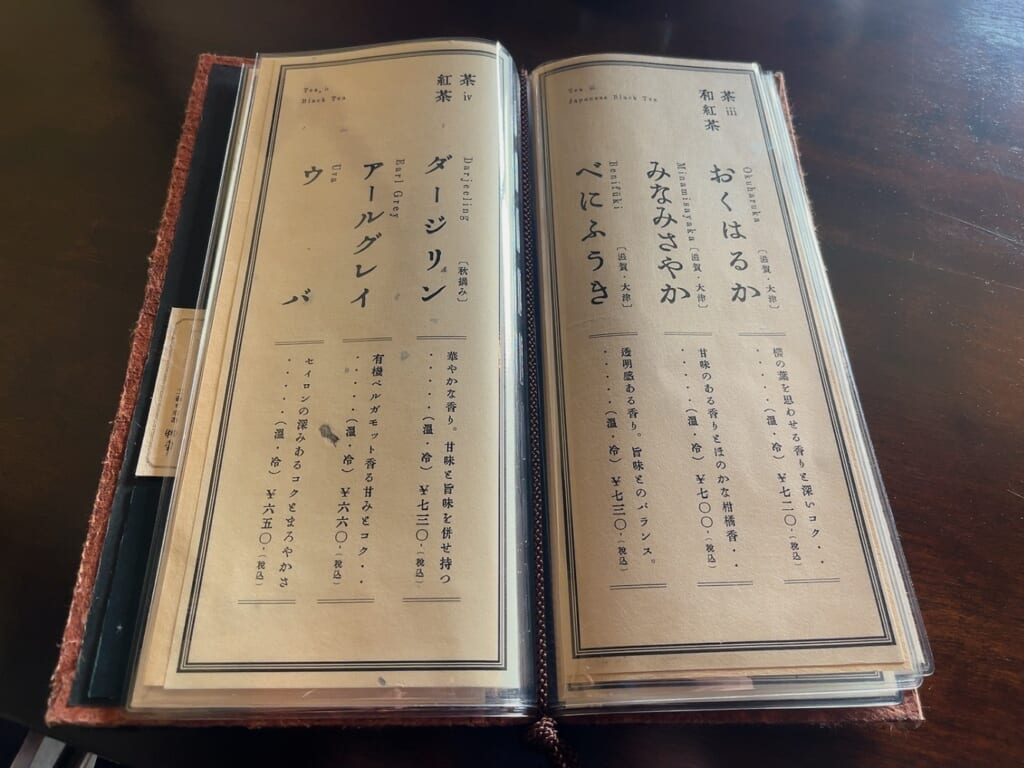 茶 iii
和紅茶
Tea iii
Japanese Black Tea
Okuharuka
おくはるか
〔滋賀・大津〕
櫻の葉を思わせる香りと深いコク・・
・・・・・(温・冷)￥七二〇-(税込)
Minamisayaka
みなみさやか
〔滋賀・大津〕
甘味のある香りとほのかな柑橘香・・
・・・・・(温・冷)￥七〇〇-(税込)
Benifuki
べにふうき
〔滋賀・大津〕
透明感ある香り。旨味とのバランス。
・・・・・(温・冷)￥七三〇-(税込)
茶 iv
紅茶
Tea iv
Black Tea
Darjeeling
ダージリン
〔秋摘み〕
華やかな香り。甘味と旨味を併せ持つ
・・・・・(温・冷)￥七三〇-(税込)
Earl Grey
アールグレイ
有機ベルガモット香る甘みとコク・・
・・・・・(温・冷)￥六六〇-(税込)
Uva
ウバ
セイロンの深みあるコクとまろやかさ
・・・・・(温・冷)￥六五〇-(税込)